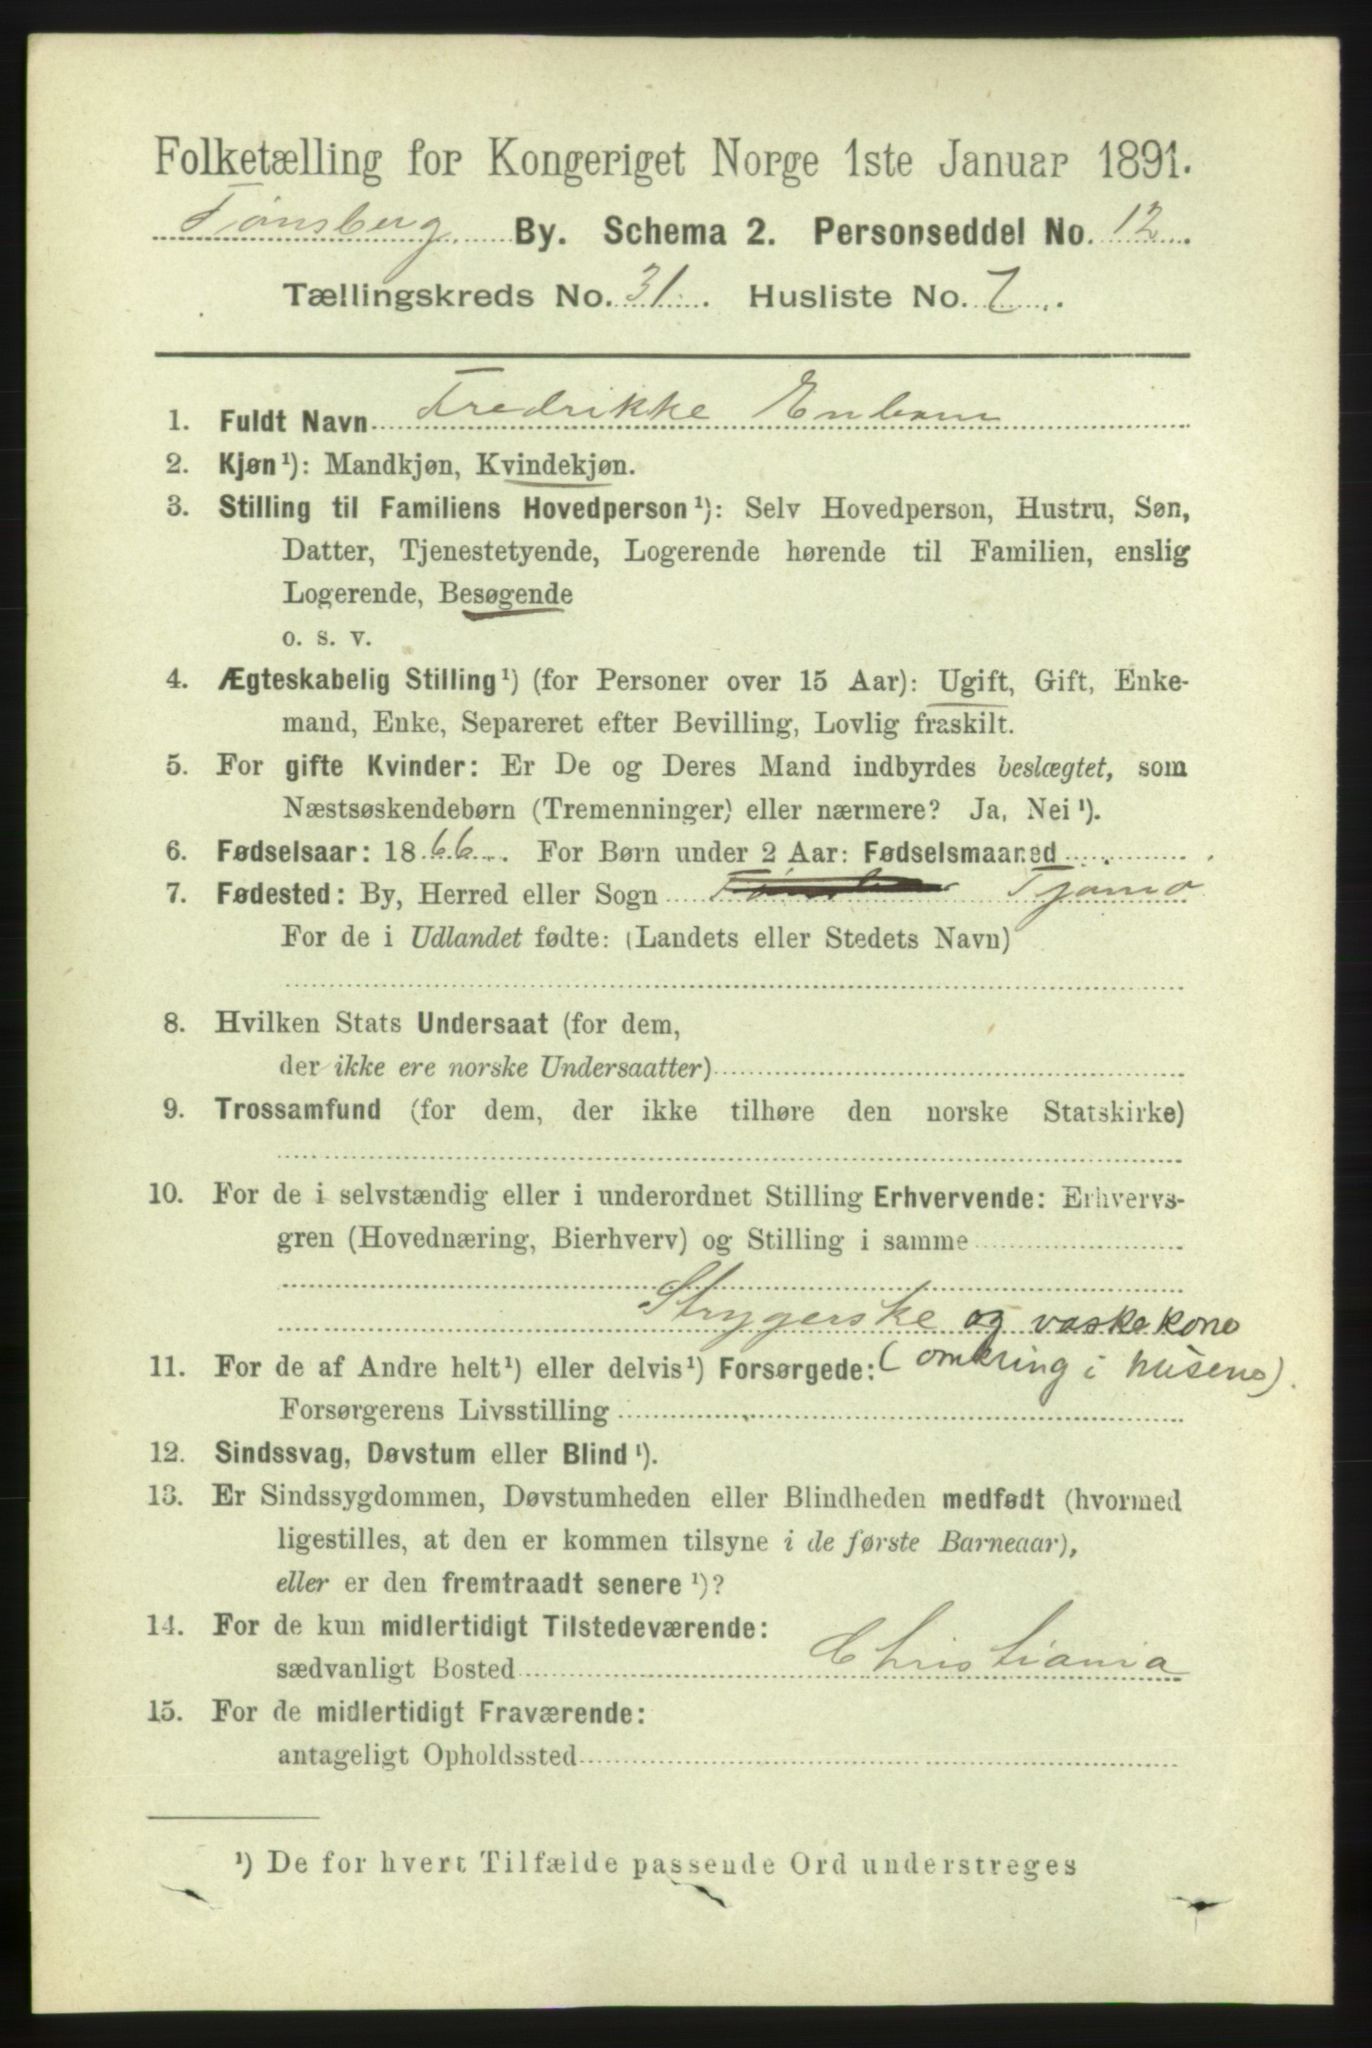 Folketælling for Kongeriget Norge 1ste Januar 1891.
Tønsberg By. Schema 2. Personseddel No. 12.
Tællingskreds No. 31. Husliste No. 7.
1. Fuldt Navn Fredrikke
2. Kjøn¹): Mandkjøn, Kvindekjøn.
3. Stilling til Familiens Hovedperson¹): Selv Hovedperson, Hustru, Søn,
Datter, Tjenestetyende, Logerende hørende til Familien, enslig
Logerende, Besøgende
o. s. v.
4. Ægteskabelig Stilling¹) (for Personer over 15 Aar): Ugift, Gift, Enke-
mand, Enke, Separeret efter Bevilling, Lovlig fraskilt.
5. For gifte Kvinder: Er De og Deres Mand indbyrdes beslægtet, som
Næstsøskendebørn (Tremenninger) eller nærmere? Ja, Nei¹).
6. Fødselsaar: 1866. For Børn under 2 Aar: Fødselsmaaned
7. Fødested: By, Herred eller Sogn Tjømø
For de i Udlandet fødte: (Landets eller Stedets Navn)
8. Hvilken Stats Undersaat (for dem,
der ikke ere norske Undersaatter)
9. Trossamfund (for dem, der ikke tilhøre den norske Statskirke)
10. For de i selvstændig eller i underordnet Stilling Erhvervende: Erhvervs-
gren (Hovednæring, Bierhverv) og Stilling i samme
Strygerske og vaskekone
11. For de af Andre helt¹) eller delvis¹) Forsørgede: (omkring i husene).
Forsørgerens Livsstilling
12. Sindssvag, Døvstum eller Blind¹).
13. Er Sindssygdommen, Døvstumheden eller Blindheden medfødt (hvormed
ligestilles, at den er kommen tilsyne i de første Barneaar),
eller er den fremtraadt senere¹)?
14. For de kun midlertidigt Tilstedeværende:
sædvanligt Bosted Christiania
15. For de midlertidigt Fraværende:
antageligt Opholdssted
¹) De for hvert Tilfælde passende Ord understreges